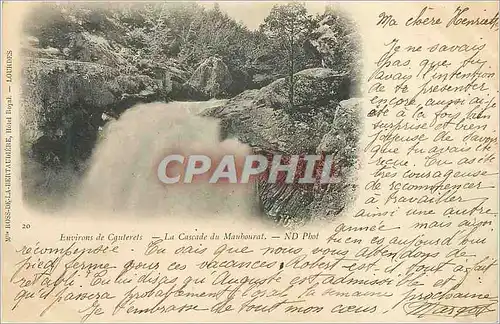 Ma chère Henriette
Je ne savais
pas que tu
avais l'intention
de te présenter
encore, aussi ai-je
été à la fois
surprise et bien
heureuse de savoir
que tu avais été
reçue. Tu as été
très courageuse
de recommencer
à travailler
ainsi une autre
année mais aussi
tu en es aujourd'hui
récompensée. Tu sais que nous vous attendons de
pied ferme pour ces vacances. Robert est-il tout à fait
rétabli. Tu lui diras qu'Auguste est admissible et
qu'il passera probablement l'oral la semaine prochaine
Je t'embrasse de tout mon cœur. Margot
Mon ROSS-DE-LA-BERTAUDIÈRE, Hôtel Royal. — LOURDES
CPAPHIL.COM
20
Environs de Cauterets — La Cascade du Mauhourat. — ND Phot